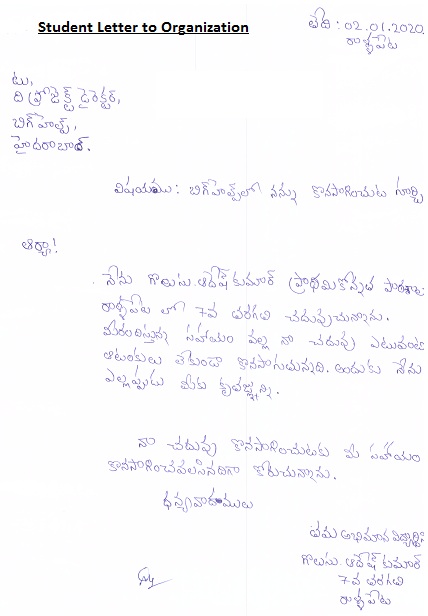 Student Letter to Organization
తేది : 02.01.2020
టు,
ది ప్రోజెక్ట్ డైరెక్టర్,
బిగ్‌హెల్ప్,
హైదరాబాద్.
విషయము : బిగ్‌హెల్ప్‌లో నన్ను కొనసాగించుట గూర్చి
ఆర్యా!
నేను గొలుసు. ఆదేష్ కుమార్ ప్రాథమికోన్నత పాఠశాల
లో 7వ తరగతి చదువుచున్నాను.
మీరందిస్తున్న సహాయం వల్ల నా చదువు ఎటువంటి
ఆటంకులు లేకుండా కొనసాగుచున్నది. అందుకు నేను
ఎల్లప్పుడు మీకు కృతజ్ఞుణ్ణి.
నా చదువు కొనసాగించుటకు మీ సహాయం
కొనసాగించవలసినదిగా కోరుచున్నాను.
ధన్యవాదములు
తమ అభిమాన విద్యార్థి
గొలుసు. ఆదేష్ కుమార్
7వ తరగతి